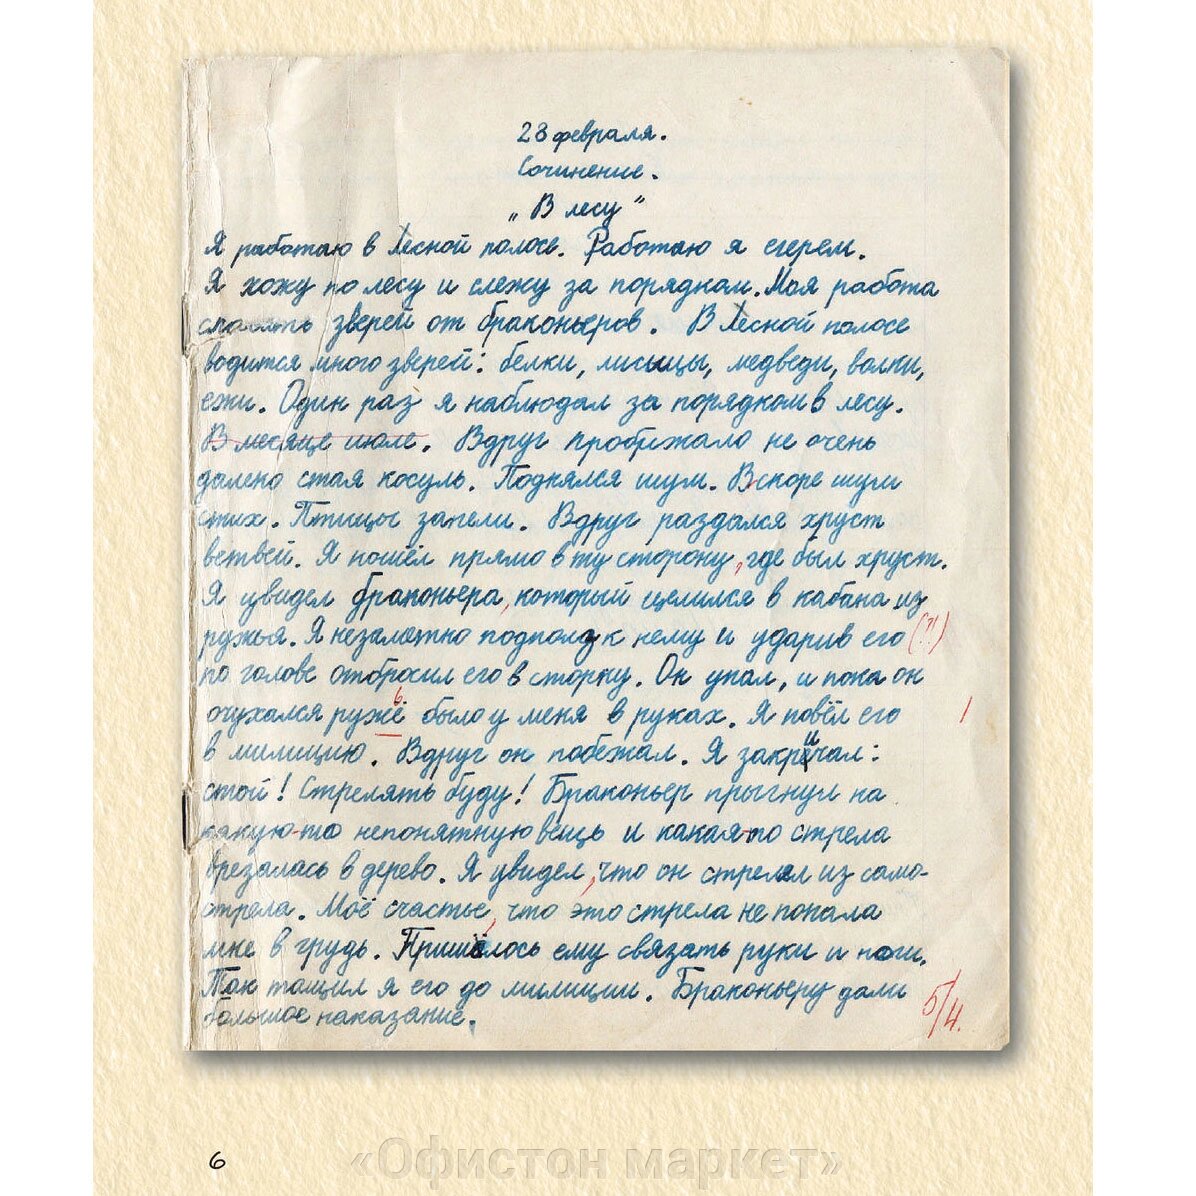 28 февраля.
Сочинение.
„В лесу"
Я работаю в Лесной полосе. Работаю я егерем.
Я хожу по лесу и слежу за порядком. Моя работа
спасать зверей от браконьеров. В Лесной полосе
водится много зверей: белки, лисыцы, медведи, волки,
ежи. Один раз я наблюдал за порядком в лесу.
В месяце июле. Вдруг пробежало не очень
далеко стая косуль. Поднялся шум. Вскоре шум
стих. Птицы запели. Вдруг раздался хруст
ветвей. Я пошёл прямо в ту сторону, где был хруст.
Я увидел браконьера, который целился в кабана из
ружья. Я незаметно подполз к нему и ударив его (?!)
по голове отбросил его в сторку. Он упал, и пока он
очухался ружьё было у меня в руках. Я повёл его
в милицию. Вдруг он побежал. Я закричал:
стой! Стрелять буду! Браконьер прыгнул на
какую-то непонятную вещь и какая-то стрела
врезалась в дерево. Я увидел, что он стрелял из само-
стрела. Моё счастье, что это стрела не попала
мне в грудь. Пришлось ему связать руки и ноги.
Так тащил я его до милиции. Браконьеру дали
большое наказание.
5/4.
6
«Офистон маркет»